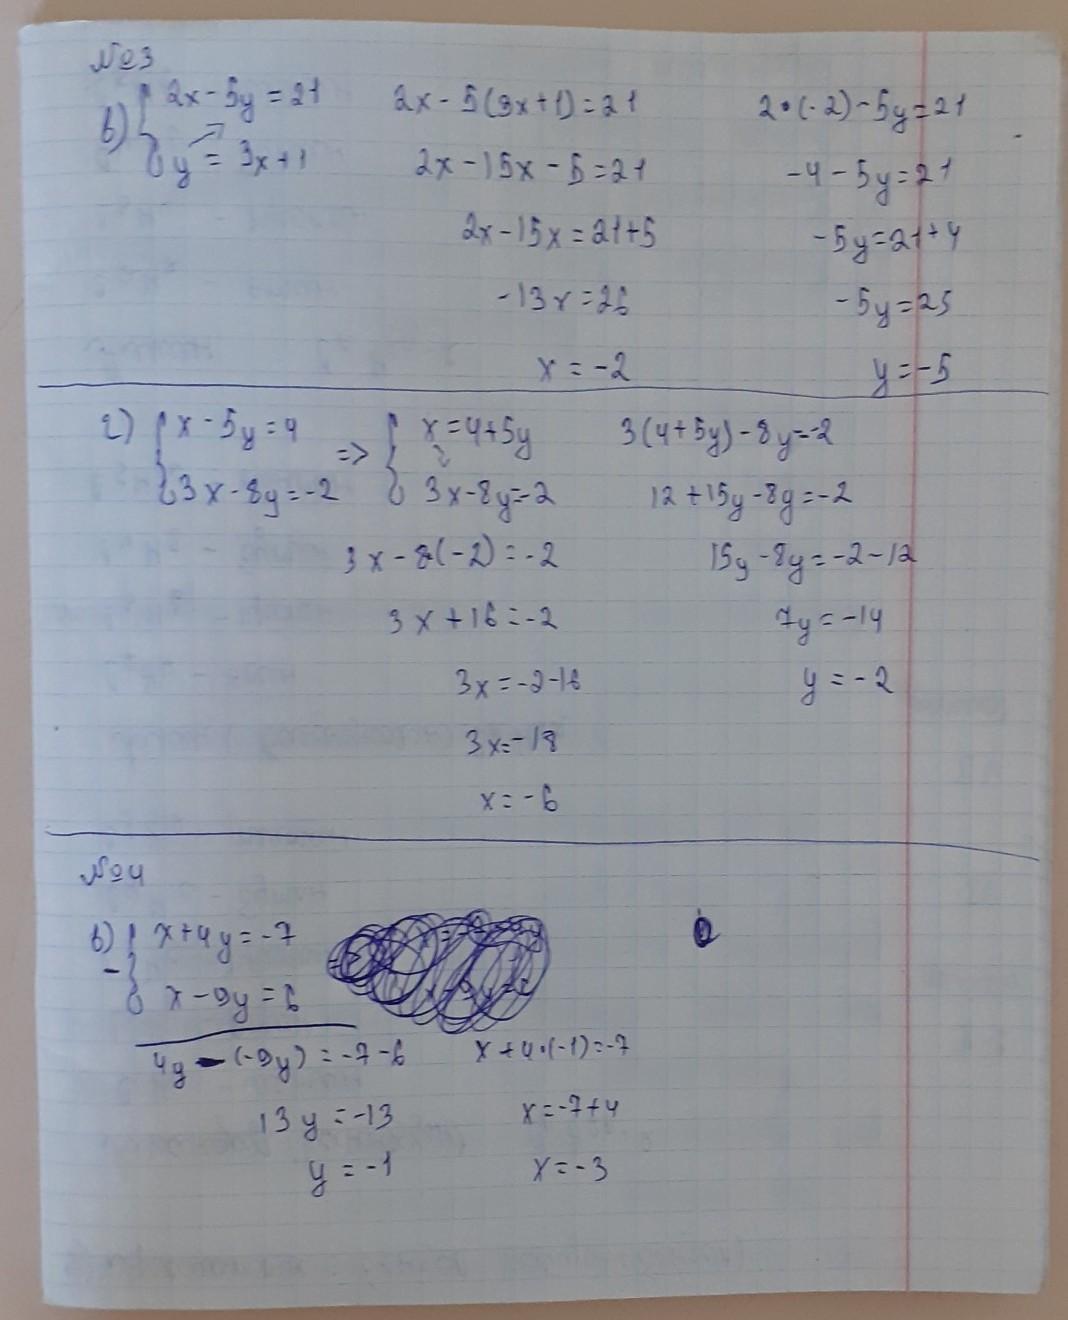 №3
в) { 2x - 5y = 21
y = 3x + 1
2x - 5(3x+1) = 21
2x - 15x - 5 = 21
2x - 15x = 21+5
-13x = 26
x = -2
2•(-2) - 5y = 21
-4 - 5y = 21
-5y = 21+4
-5y = 25
y = -5
г) { x - 5y = 4
3x - 8y = -2
=> { x = 4+5y
3x - 8y = -2
3(4+5y) - 8y = -2
12 + 15y - 8y = -2
15y - 8y = -2 - 12
7y = -14
y = -2
3x - 8(-2) = -2
3x + 16 = -2
3x = -2-16
3x = -18
x = -6
№4
в) - { x + 4y = -7
x - 9y = 6
4y - (-9y) = -7 - 6
13y = -13
y = -1
x + 4•(-1) = -7
x = -7+4
x = -3